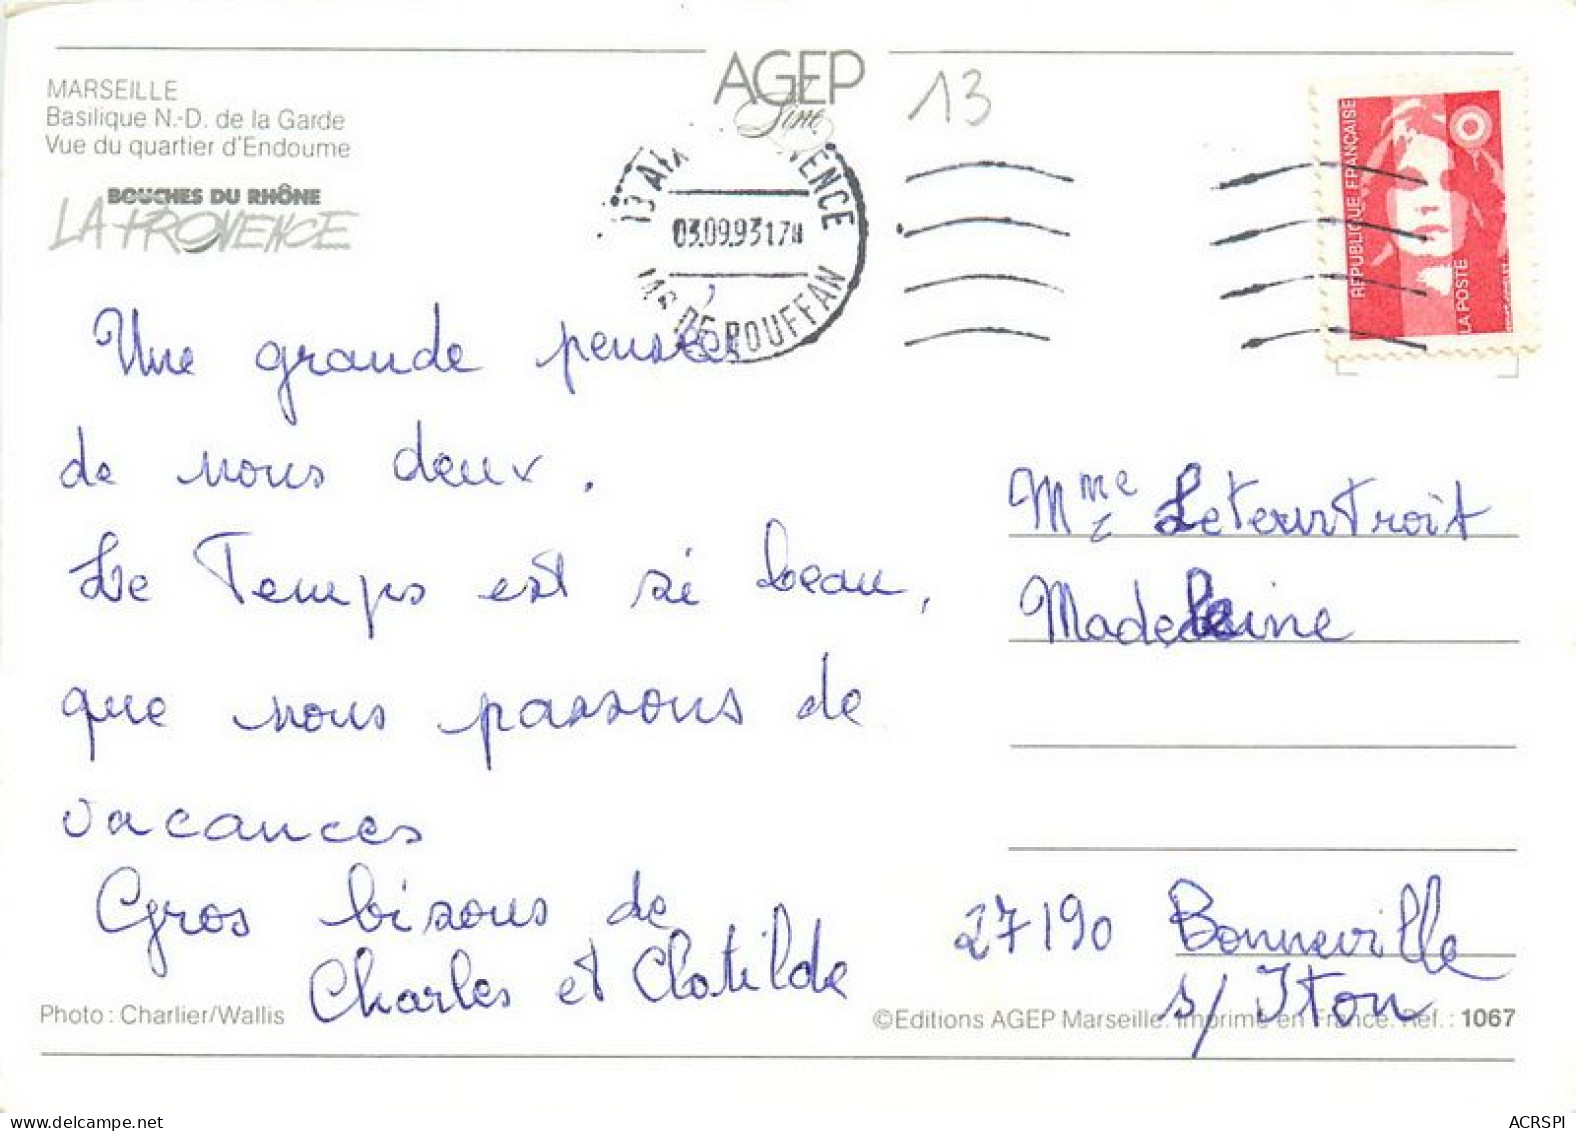 AGEP
Line
13
MARSEILLE
Basilique N.-D. de la Garde
Vue du quartier d'Endoume
BOUCHES DU RHÔNE
LA PROVENCE
13 AIX PROVENCE
03.09.93 17H
JAS DE BOUFFAN
REPUBLIQUE FRANÇAISE
LA POSTE
Une grande pensée
de nous deux.
Le Temps est si beau,
que nous passons de
vacances
Gros bisous de
Charles et Clotilde
Mme Letourtroit
Madeleine
27190 Bonneville
s/ Iton
Photo : Charlier/Wallis
©Editions AGEP Marseille. Imprimé en France. Réf. : 1067
ACRSPI